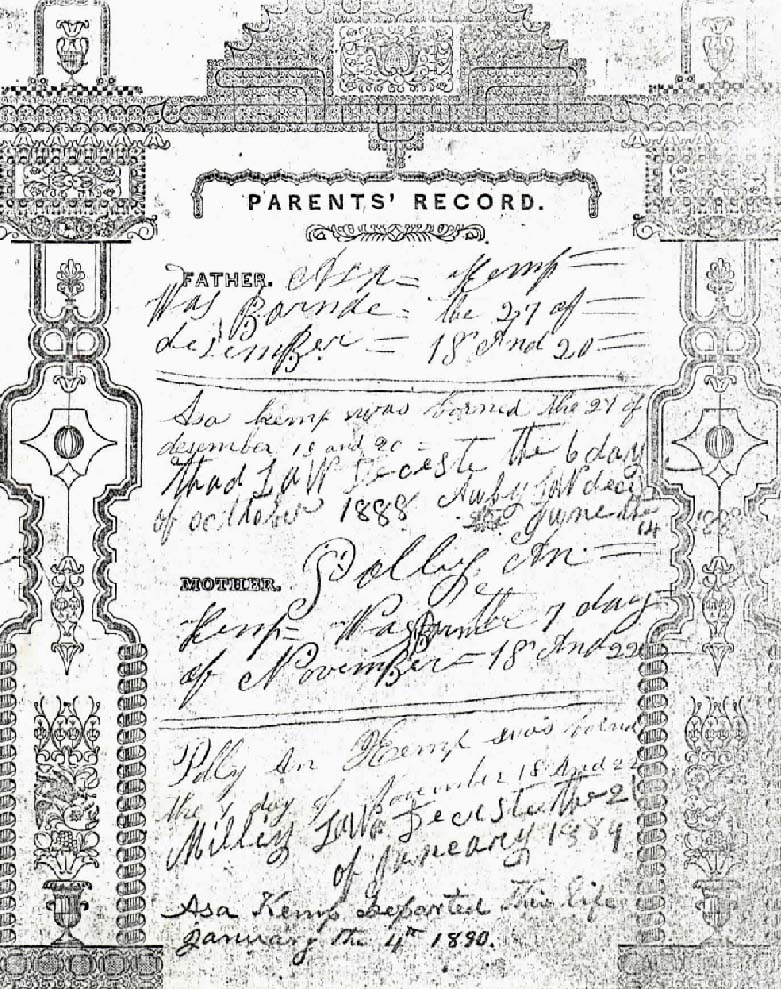 PARENTS' RECORD.
FATHER. Asa = Kemp =
Was Bornde = the 27 of =
desember = 18 And 20 =
Asa kemp was borned the 27 of
desember 18 and 20 =
thad LaW Deceste the 6 day
of octtober 1888 LaW dece
Gune the 14
MOTHER. Polly An =
Kemp = Was the 7 day
of November = 18 And 22
Polly An Kemp was borned
the 7 day of November 18 And 22
Milley LaW Deceste the 2
of Juneary 1889
Asa Kemp Departed This life
January the 4th 1890.